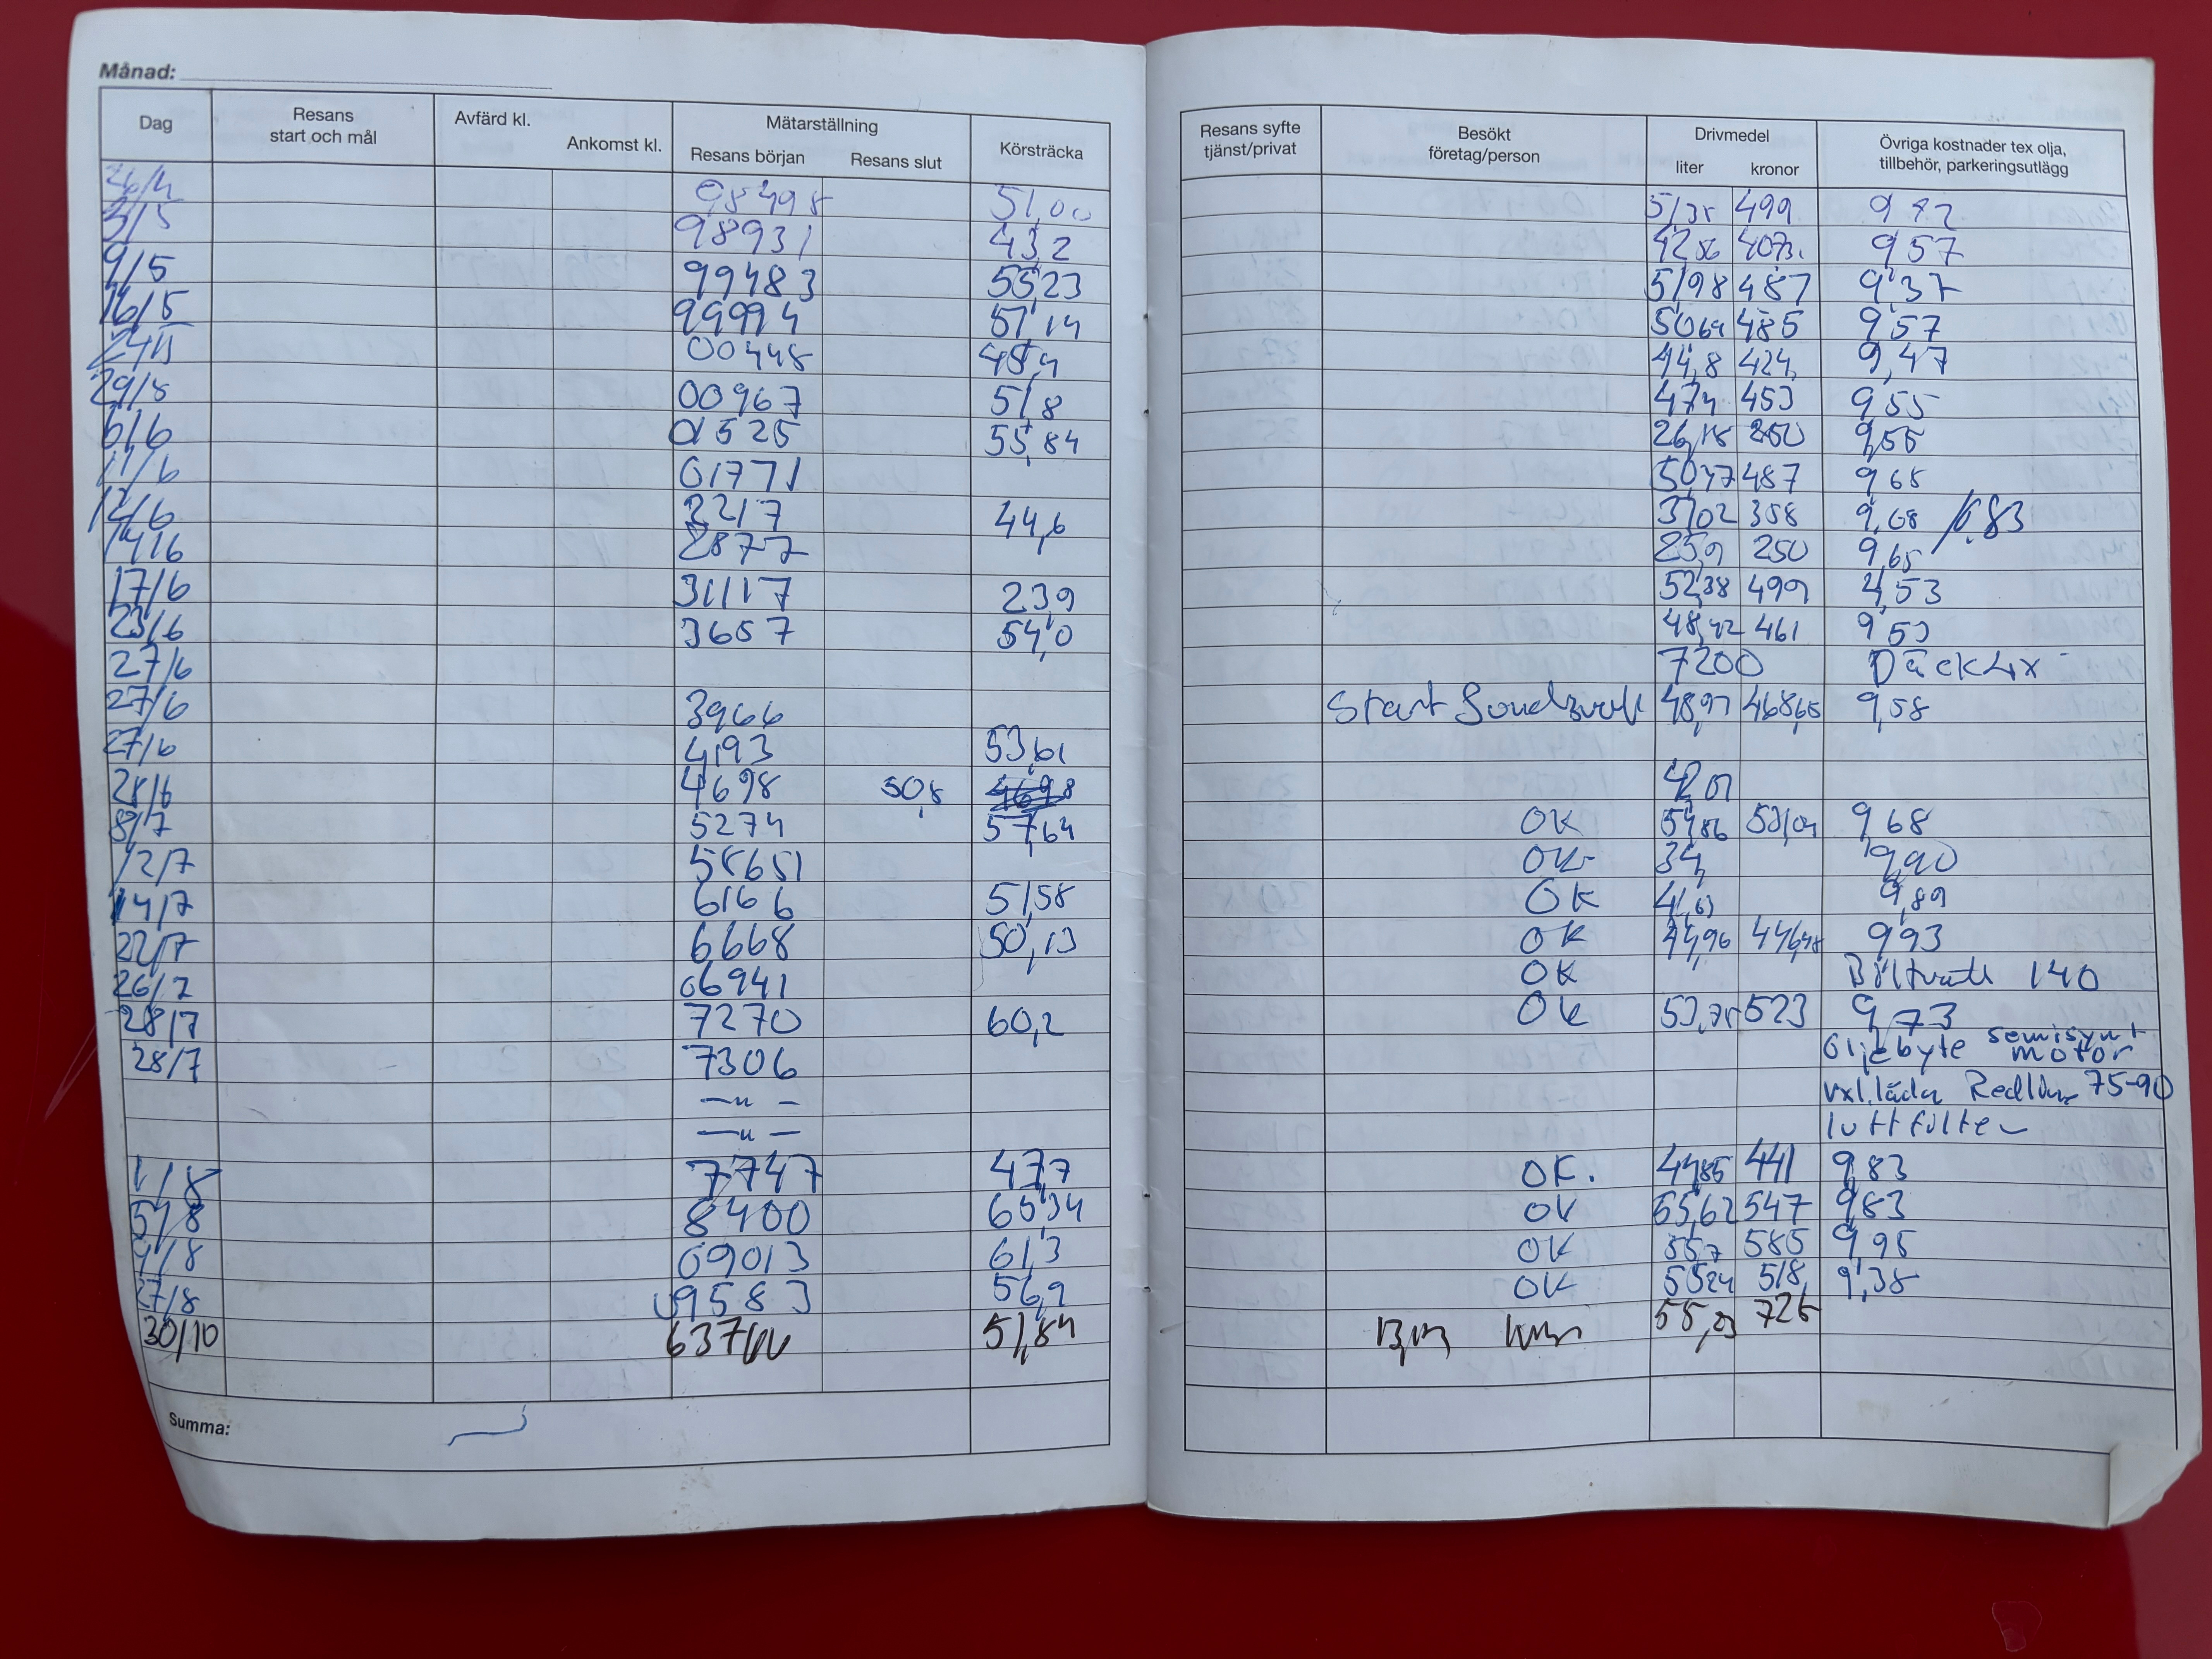 Månad:
Dag Resans start och mål Avfärd kl. Ankomst kl. Mätarställning Resans början Resans slut Körsträcka Resans syfte tjänst/privat Besökt företag/person Drivmedel liter kronor Övriga kostnader tex olja, tillbehör, parkeringsutlägg
26/4 98498 51,00 51,35 499 9 72
3/5 98931 43,2 42 56 407 9 57
9/5 99483 55,23 51 98 487 9,37
16/5 99994 51,14 50 64 485 9,57
00448 45,4 44,8 424 9,47
00967 51,8 47,4 453 9 55
6/6 01525 55,84 26,18 250 9,55
11/6 01771 50,47 487 9 68
12/6 2217 44,6 37,02 358 9,68
14/6 2877 25,9 250 9,65
17/6 31117 23,9 52,38 499 9,53
23/6 3657 54,0 48,42 461 9 53
27/6 7200 Däck 4x
27/6 3966 Start 48,97 468,65 9,58
27/6 4193 53,61
28/6 4698 50,8 42 07
8/7 5274 57,64 OK 54,86 531,04 9,68
12/7 58651 OK 34, 9,90
14/7 6166 51,58 OK 41,63 9,89
22/7 6668 50,13 OK 44,96 446,48 9,93
26/7 06941 OK 140
28/7 7270 60,2 OK 53,75 523 9,73
28/7 7306 Oljebyte semisynt motor
—"— vxl.låda Redline 75-90
—"— luftfilter
1/8 7747 47,7 OK. 44,85 441 9,83
5/8 8400 65,34 OK 55,62 547 9,83
09013 61,3 OK 585 9,95
27/8 09583 56,9 OK 55 24 518, 9,38
30/10 51,84 55,03 725
Summa: